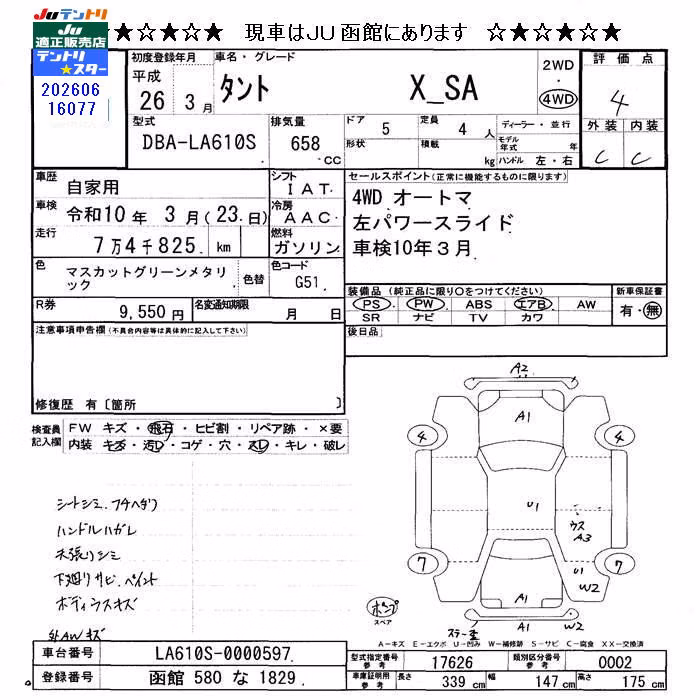 Juテントリ
Ju
適正販売店
テントリ
☆スター
202606
16077
★☆★☆★☆ 現車はJU函館にあります ☆★☆★☆★
初度登録年月
平成
26 3月
車名・グレード
タント X_SA
2WD
・
4WD
評価点
4
外装 内装
C C
型式
DBA-LA610S
排気量
658
CC
ドア 5
形状
定員 4人
積載 kg
ディーラー・並行
モデル年式 年
ハンドル 左・右
車歴 自家用
シフト
IAT
車検 令和10年 3月(23.日)
冷房
AAC
走行 7万4千825. km
燃料
ガソリン
色 マスカットグリーンメタリック
色替
色コード
G51
セールスポイント(正常に機能するものに限ります)
4WD オートマ
左パワースライド
車検10年3月
装備品(純正品に限り○をつけてください)
PS PW ABS エアB AW
SR ナビ TV カワ
新車保証書
有・無
R券 9,550円
名変通知期限 月 日
後日品
注意事項申告欄(不具合内容等は具体的に記入して下さい)
修復歴 有〔箇所 〕
検査員記入欄
FW キズ・飛石・ヒビ割・リペア跡・×要
内装 キズ・汚レ・コゲ・穴・スレ・キレ・破レ
シートシミ・フチヘタリ
ハンドルハガレ
天張りシミ
下廻りサビ・ペイント
ボディウスキズ
外AWキズ
A2
A1
4 4
U1
ウス
A3
7 7
U1
W2
A1
A1 W2
ステー歪
ポンプ
スペア
A-キズ E-エクボ U-凹み W-補修跡 S-サビ C-腐食 XX-交換済
車台番号 LA610S-0000597
登録番号 函館 580 な 1829
型式指定番号
参考
17626
類別区分番号
参考
0002
車庫証明用
参考
長さ 339 cm
幅 147 cm
高さ 175 cm